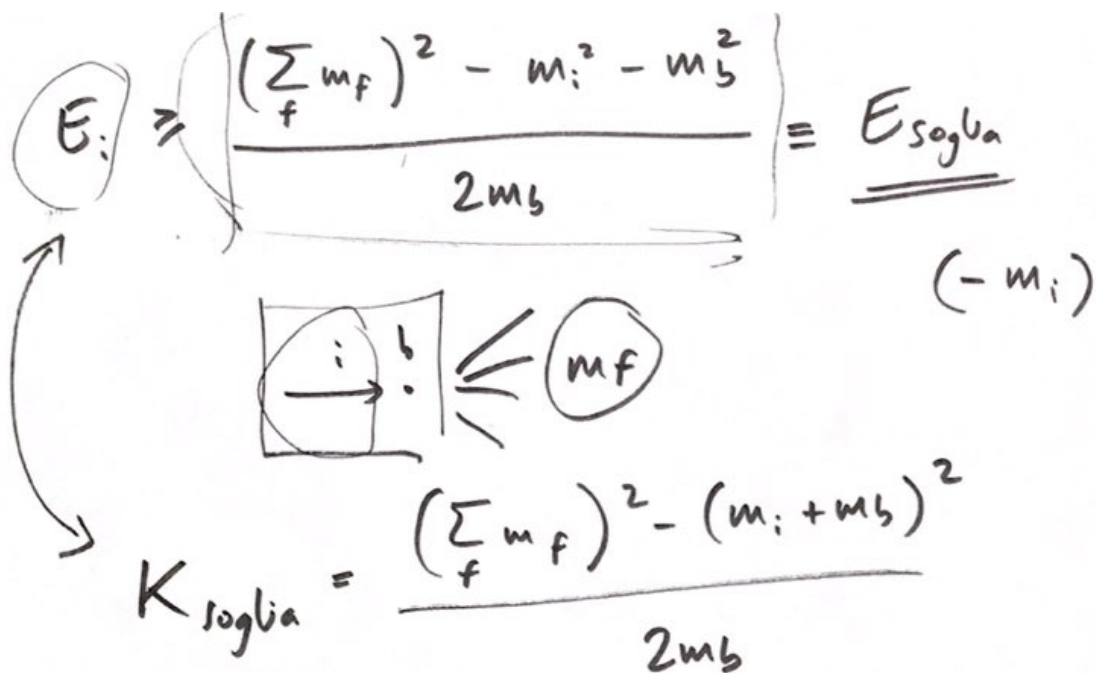 E_i ≥ ((∑_f m_f)^2 - m_i^2 - m_b^2) / (2m_b) ≡ E_soglia
(- m_i)
i b
m_f
K_soglia = ((∑_f m_f)^2 - (m_i + m_b)^2) / (2m_b)